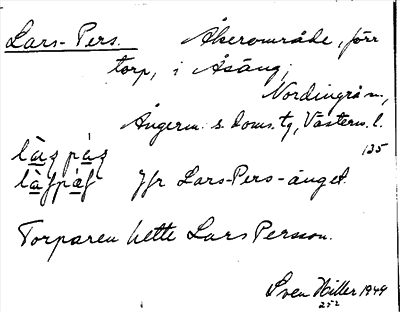 Lars-Pers. Åkerområde, förr
torp, i Åsäng,
Nordingrå sn,
Ångerm. s. doms. tg, Västern. l.
135
làs pàs
làspàs Jfr Lars-Pers-änget.
Torparen hette Lars Persson.
Sven Hiller 1949
252